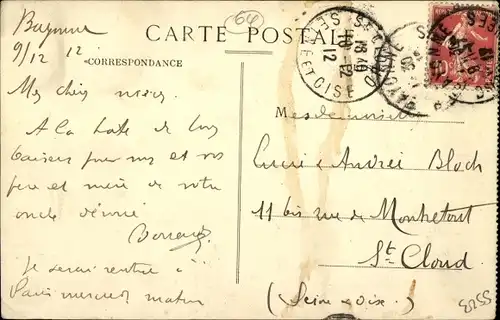 Bayonne
9/12 12
64
CARTE POSTALE
CORRESPONDANCE
Mes chères nièces
A la hâte de bons
baisers pour vous et vos
père et mère de votre
oncle dévoué
Je serai rentré à
Paris mercredi matin
Mesdemoiselles
Lucie & Andrée Bloch
11 bis rue de Montretout
St Cloud
(Seine & Oise)
ST CLOUD
10-12
12
SEINE ET OISE
BAYONNE
3255